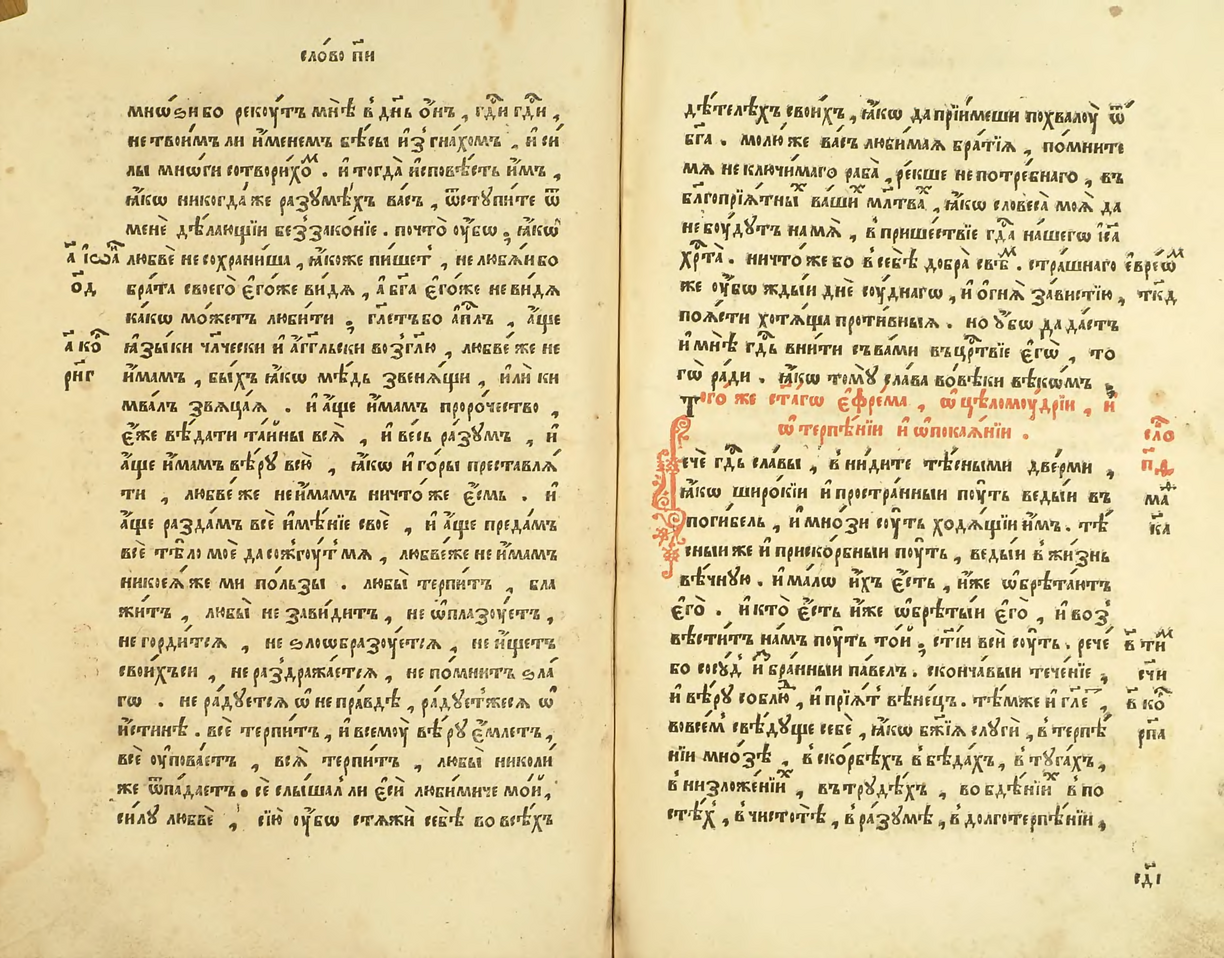 сло́во п҃и
мнѡ́ѕи бо рекоу́тъ мнѣ̀ в дн҃ь о́нъ , гдⷭ҇и гдⷭ҇и ,
не твои́мъ ли и҆́менемъ бѣ́сы и҆згна́хомъ , и си́
лы мнѡ́ги сотвори́хоⷨ . и҆ тогда̀ и҆сповѣ́сть и҆̀мъ ,
ꙗ҆́кѡ никогда́же разꙋмѣ́хъ ва́съ , ѿстꙋпи́те ѿ
менѐ дѣ́лающїи беззако́нїе . почто̀ оу҆́бѡ , ꙗ҆́кѡ
любвѐ не сохрани́ша , ꙗ҆́коже пи́шет , не любѧ́и бо
бра́та своего̀ є҆го́же ви́дѧ , а҆ бг҃а є҆го́же не ви́дѧ
ка́кѡ мо́жетъ люби́ти , гл҃етъ бо а҆пⷭ҇лъ , а҆́ще
ꙗ҆зы́ки чл҃чески и҆ а҆́гг҃льски возгл҃ю , любве́ же не
и҆́мамъ , бы́хъ ꙗ҆́кѡ мѣ́дь звенѧ́щи , и҆лѝ ки
мва́лъ звѧца́ѧ . и҆ а҆́ще и҆́мамъ проро́чество ,
є҆́же вѣ́дати та́йны всѧ̀ , и҆ ве́сь ра́зꙋмъ , и҆
а҆́ще и҆́мамъ вѣ́рꙋ всю̀ , ꙗ҆́кѡ и҆ го́ры преставлѧ́
ти , любве́ же не и҆́мамъ ничто́же є҆́смь . и҆
а҆́ще разда́мъ всѐ и҆мѣ́нїе своѐ , и҆ а҆́ще преда́мъ
всѐ тѣ́ло моѐ да сожгоу́т мѧ̀ , любве́же не и҆́мамъ
никоеѧ́же ми по́льзы . любы̀ терпи́тъ , бла
жи́тъ , любы̀ не зави́дитъ , не ѡ҆плазоу́етъ ,
не горди́тсѧ , не ѕлоѡбразоу́етсѧ , не и҆́щетъ
свои́хъ си , не раздража́етсѧ , не по́мнитъ ѕла́
гѡ . не ра́дꙋетсѧ ѡ҆ непра́вдѣ , ра́дꙋетжесѧ ѡ҆
и҆́стинѣ . всѐ терпи́тъ , и҆ всемоу̀ вѣ́рꙋ є҆́млетъ ,
всѐ оу҆пова́етъ , всѧ̀ терпи́тъ , любы̀ николи
же ѿпа́даетъ . сѐ слы́шал ли є҆сѝ люби́миче мо́й ,
си́лꙋ любвѐ , сїю̀ оу҆́бѡ стѧжѝ себѣ̀ во всѣ́хъ
а҃ і҆ѡаⷩ
о҃д
а҃ коⷬ
рн҃г
дѣ́телѣхъ свои́хъ , ꙗ҆́кѡ да прїи́меши похвалоу̀ ѿ
бг҃а . молю́ же ва́съ люби́маѧ бра́тїѧ , помни́те
мѧ̀ неключи́маго раба̀ , ре́кше непотре́бнаго , въ
бл҃гопрїѧ́тныⷯ ва́шиⷯ мл҃тваⷯ , ꙗ҆́кѡ словеса̀ моѧ̀ да
не боу́дꙋтъ на мѧ̀ , в прише́ствїе гдⷭ҇а на́шегѡ і҆с҃а
хрⷭ҇та̀ . ничто́же бо в себѣ̀ добра̀ свѣ́ⷨ . стра́шнаго
же оу҆́бѡ жды́и днѐ соу́днагѡ , и҆ о҆гнѧ̀ за́вистїю ,
поѧ́сти хотѧ́ща проти́вныѧ . но оу҆́бѡ да да́стъ
и҆ мнѣ̀ гдⷭ҇ь вни́ти съ ва́ми въ црⷭ҇твїе є҆гѡ̀ , то
гѡ̀ ра́ди . ꙗ҆́кѡ томꙋ̀ сла́ва во вѣ́ки вѣкѡ́мъ .
Того́ же ст҃а́гѡ є҆фре́ма , ѡ҆ цѣломоу́дрїи , и҆
ѡ҆ терпѣ́нїи и҆ ѡ҆ покаѧ́нїи .
Рече́ гдⷭ҇ь сла́вы , вни́дите тѣ́сными две́рми ,
ꙗ҆́кѡ широ́кїи и҆ простра́нныи поу́ть веды́и въ
поги́бель , и҆ мно́зи соу́ть ходѧ́щїи и҆́мъ . тѣ́
сныи же и҆ приско́рбныи поу́ть , веды́и в жи́знь
вѣ́чнꙋю . и҆ ма́лѡ и҆́хъ є҆́сть , и҆́же ѡ҆брѣта́ютъ
є҆го̀ . и҆ кто̀ є҆́сть и҆́же ѡ҆брѣты́и є҆го̀ , и҆ воз
вѣсти́тъ на́мъ поу́ть то́й , ст҃і́и всѝ соу́ть . рече́
бо сосꙋ́дъ и҆збра́нныи па́велъ . сконча́выи тече́нїе ,
и҆ вѣ́рꙋ соблю́дъ , и҆ прїѧ́т вѣне́цъ . тѣ́мже и҆ гл҃е ,
во всем свѣ́дꙋще себѐ , ꙗ҆́кѡ бж҃їѧ слꙋги̑ , в терпѣ́
нїи мно́зѣ , в ско́рбехъ в бѣда́хъ , в тꙋга́хъ ,
в низложе́нїиⷯ , въ трꙋдѣ́хъ , во бдѣ́нїиⷯ в по
стѣ́х , в чистотѣ̀ , в ра́зꙋмѣ , в долготерпѣ́нїи ,
є҆вре́ѡⷨ
тк҃д
сло
п҃д
маⷴ
к҃а
в҃ тиⷨ
сч҃и
в҃ коⷬ
рп҃а
сд҃і